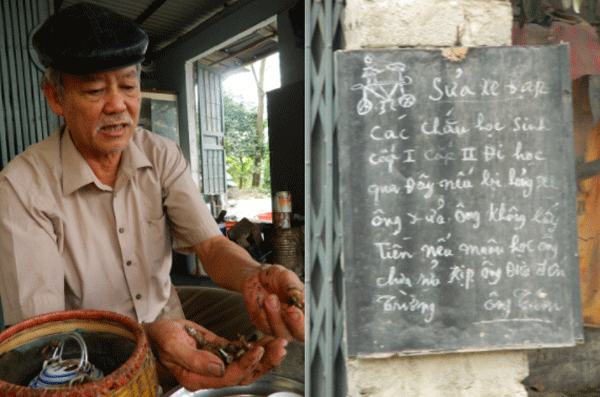 Sửa xe đạp
Các cháu học sinh
cấp I cấp II đi học
qua đây nếu bị hỏng xe
ông sửa. Ông không lấy
Tiền nếu muộn học ông
chữa kịp ông đưa đến
Trường ông